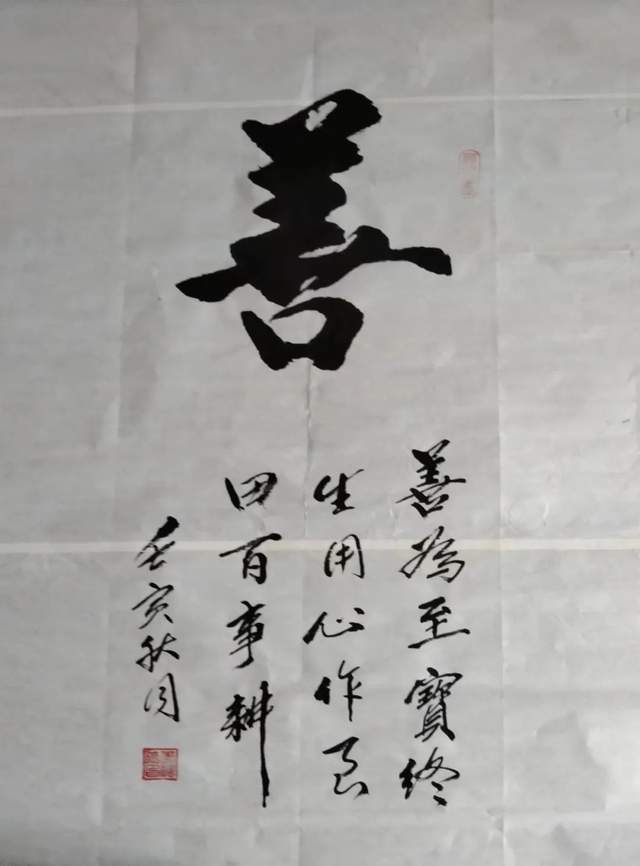 善
善為至寶終
生用心作良
田百事耕
壬寅秋月